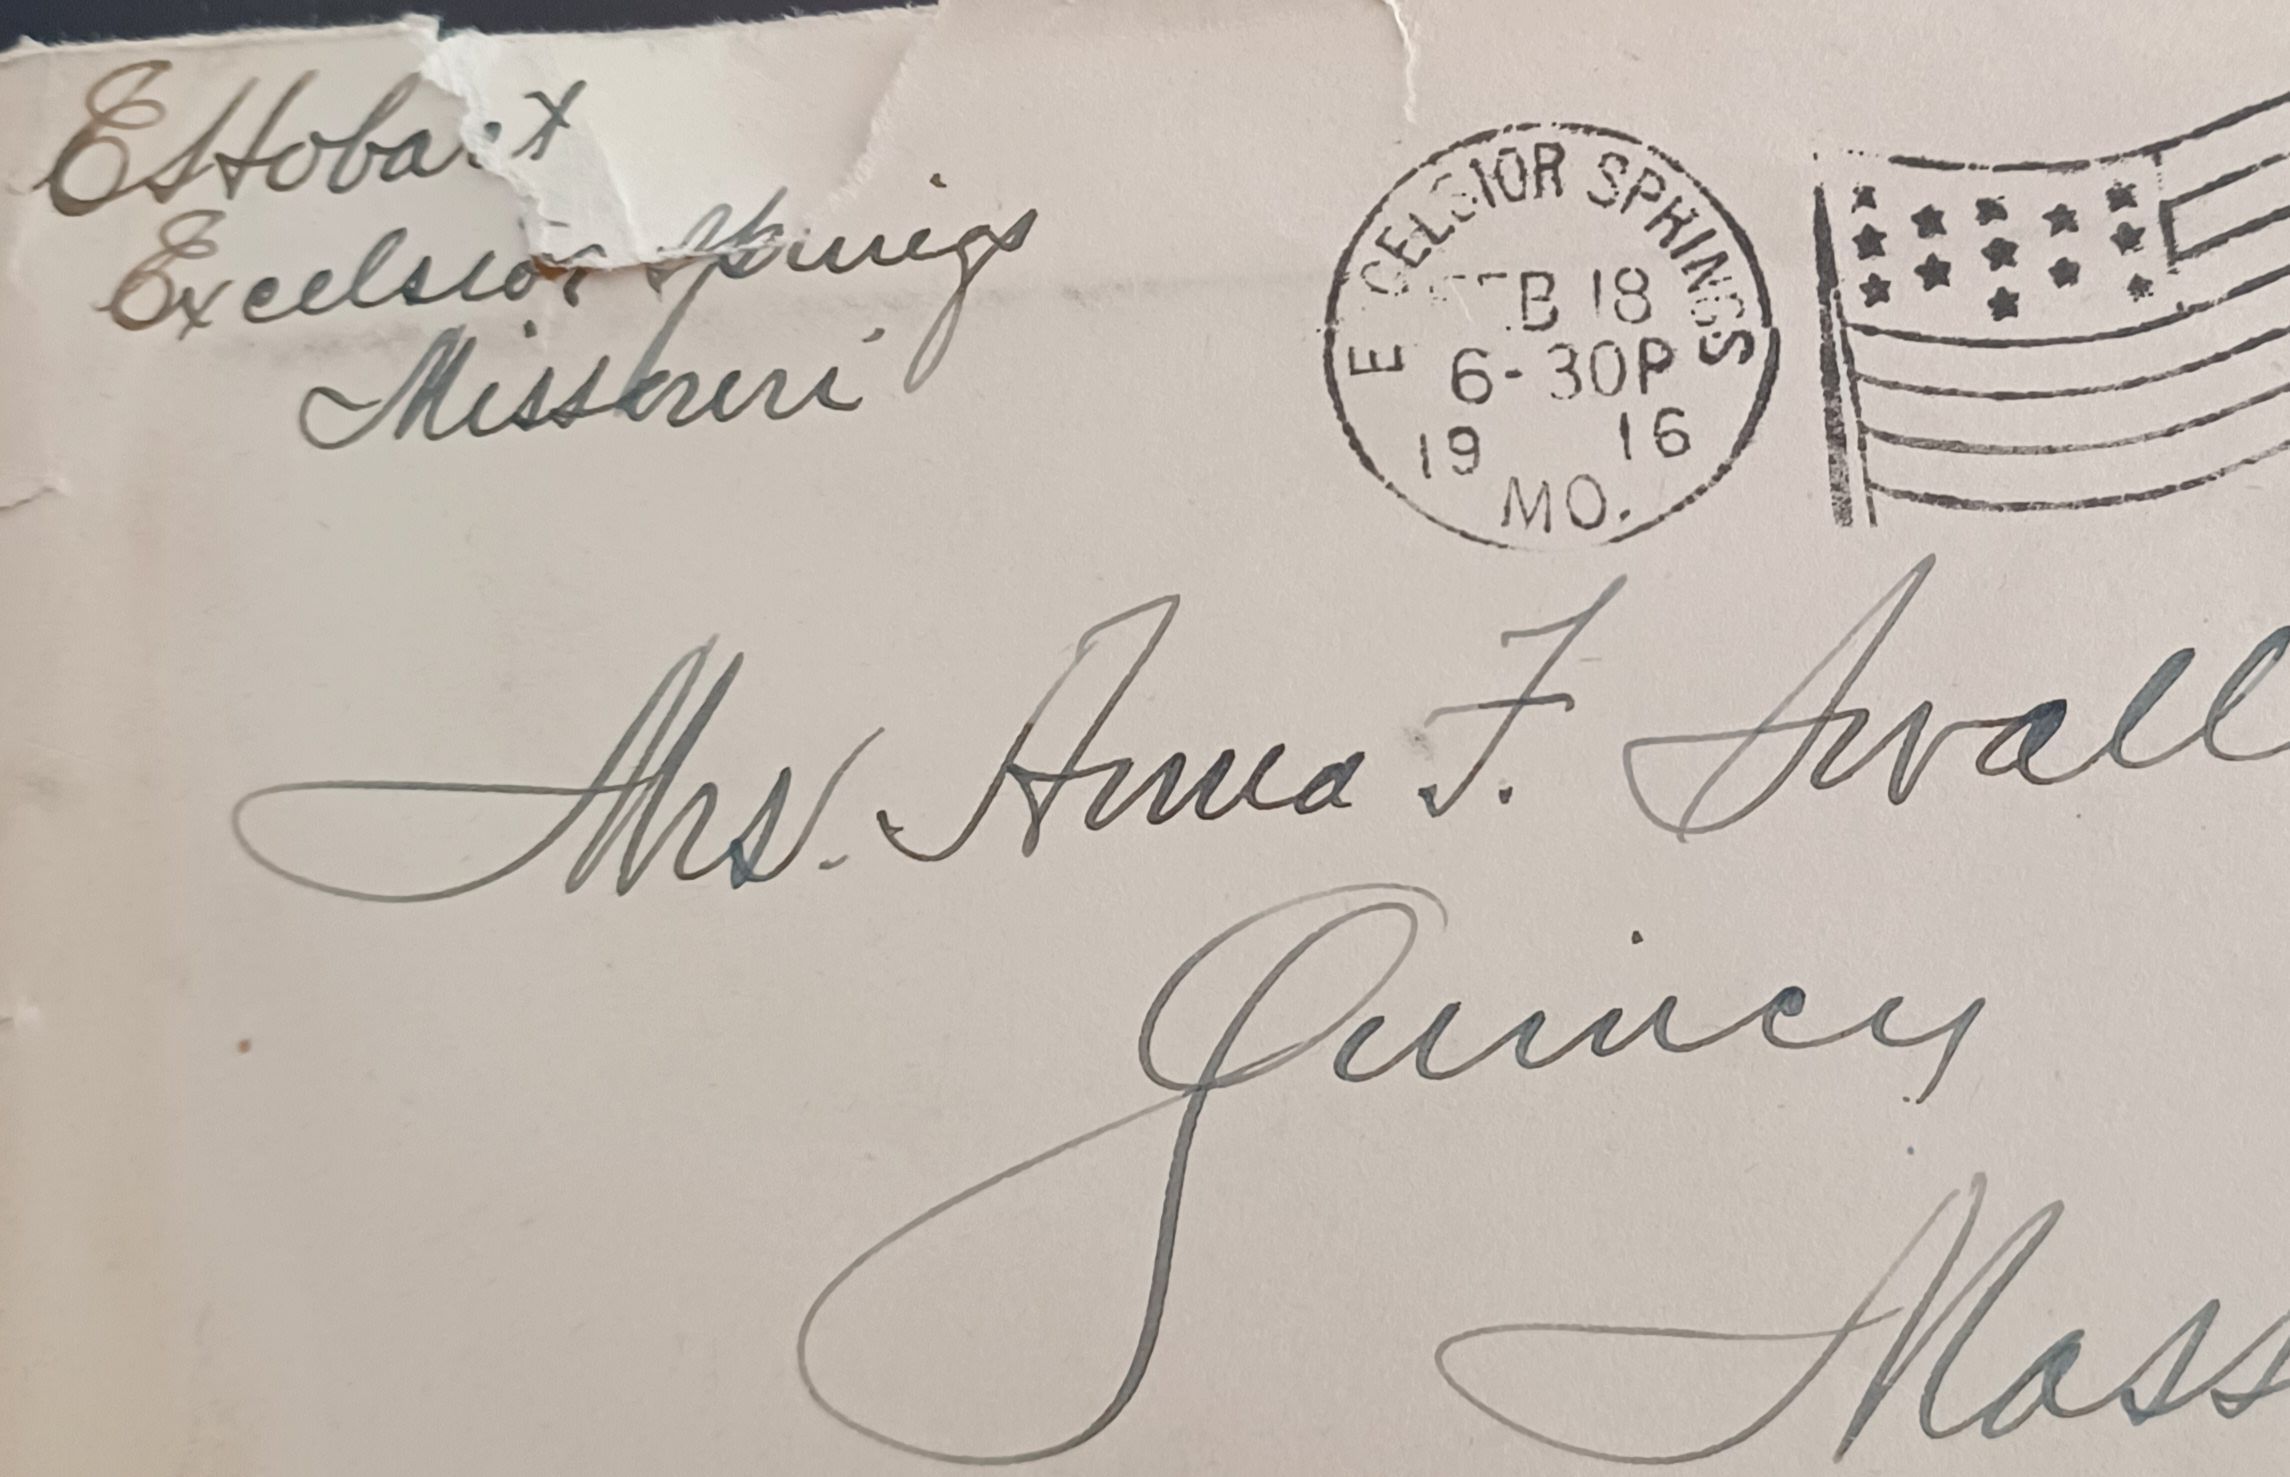 E Hobart
Excelsior Springs
Missouri
E CELSIOR SPRINGS
FEB 18
6-30P
19 16
MO.
Mrs. Anna F. Swall
Quincy
Mass